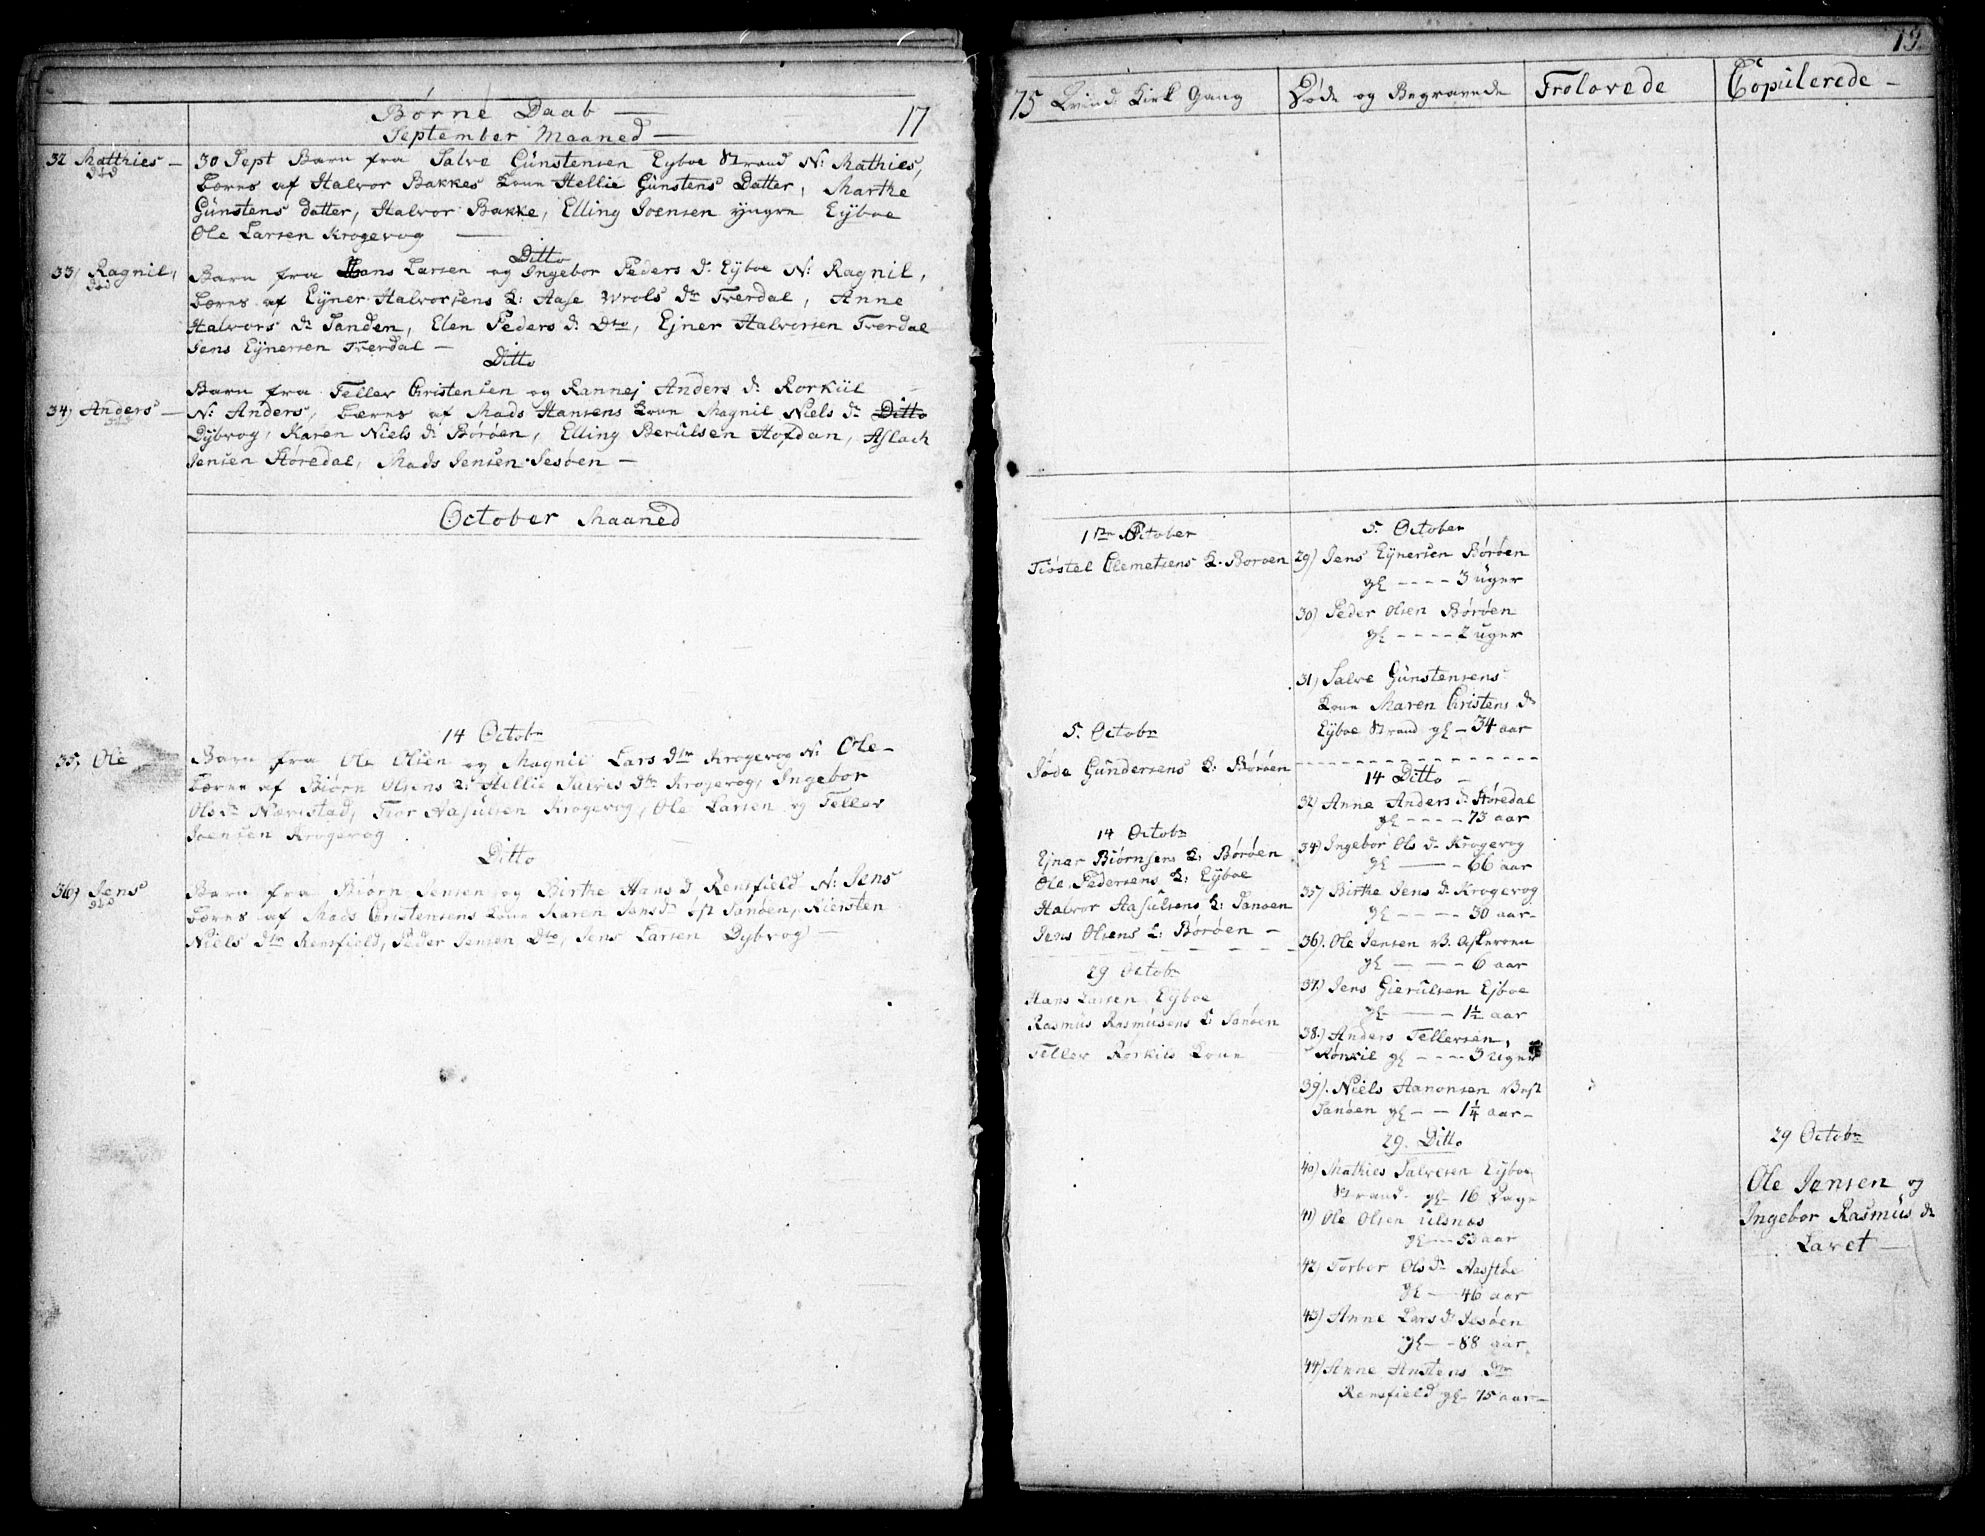 Børne Daab — 17
September Maaned —
32 Matthies —
død
30 Sept Barn fra Salve Günstensen Eyboe Strand N: Mathies,
bæres af Halvor Bakkes Kone Hellie Günstens Datter, Marthe
Günstens datter, Halvor Bakke, Elling Joensen yngre Eyboe
Ole Larsen Krogevog —
Ditto
33, Ragnil,
død
Barn fra Hans Larsen og Ingebor Peders d: Eyboe N: Ragnil,
bæres af Eyner Halvorsens K: Aase Wrols dtr Tverdal, Anne
Halvors dr Sanden, Elen Peders d: Dto, Ejner Halvorsen Tverdal
Jens Eynersen Tverdal —
Ditto
34, Anders —
død
Barn fra Tellev Christensen og Rannej Anders d: Rorkiil
N: Anders, bæres af Mads Hansens Kone Magnil Niels dr Ditto
Dybvog, Karen Niels d: Børøen, Elling Berulsen Hofdan, Aslach
Jensen Høredal, Mads Jensen Sesøen —
October Maaned
14 Octobr
35, Ole —
Barn fra Ole Olsen og Magnil Lars dtr Krogevog N: Ole —
bæres af Biørn Olsens K: Hellie Salves dtr Krogevog, Ingebor
Ols dr Næristad, Tior Aasulsen Krogevog, Ole Larsen og Tellev
Joensen Krogevog
Ditto
36, Jens
død
Barn fra Biørn Jensen og Birthe Hans d Rensfield N: Jens
bæres af Mads Christensens Kone Karen Jens d øst Sanøen, Kiersten
Niels dtr Rensfield, Peder Jensen Dto, Jens Larsen Dybvog —
19.
75 Qvind: Kirk Gang
Døde og Begravede
Trolovede
Copulerede —
1ste October
Tiøstel Clemetsens K. Borøen
5. Octobr
Jøde Gundersens K: Børøen
14 Octobr
Ejner Biørnsens K: Børøen
Ole Pedersens K: Eyboe
Halvor Aasulsens K: Sanøen
Jens Olsens K: Børøen —
29 Octobr
Hans Larsen Eyboe
Rasmus Rasmusens K: Sanøen
Tellev Rorkils Kone
5. October
29) Jens Eynersen Børøen
gl — — 3 uger
30) Peder Olsen Børøen
gl — — 2 uger
31) Salve Günstensens
Kone Maren Christens dr
Eyboe Strand gl — 34 aar
14 Ditto —
32) Anne Anders d: Høredal
gl — — 73 aar
34) Ingebor Ols dr Krogevog
gl — 66 aar
35) Birthe Jens dr Krogevog
gl — — 30 aar —
36). Ole Jensen V. Askeroen
gl — — 6 aar
37.) Jens Gierulsen Ejboe
gl — — 1½ aar
38.) Anders Tellevsen,
Rørkil gl — — 3 uger
39). Niels Aanonsen Vest
Sanøen gl — — 1¼ aar —
29. Ditto
40) Mathies Salvesen Eyboe
Strand — gl — 16 Dage
41) Ole Olsen Ulsnæs
gl — 53 aar
42) Torbor Ols dr Aasstøe
gl — 46 aar
43) Anne Lars d: Sesøen
gl — 88 aar
44) Anne Anstens Dtr
Rensfield gl — 75 aar —
29 Octobr
Ole Jensen og
Ingebor Rasmus dr
Lavet —